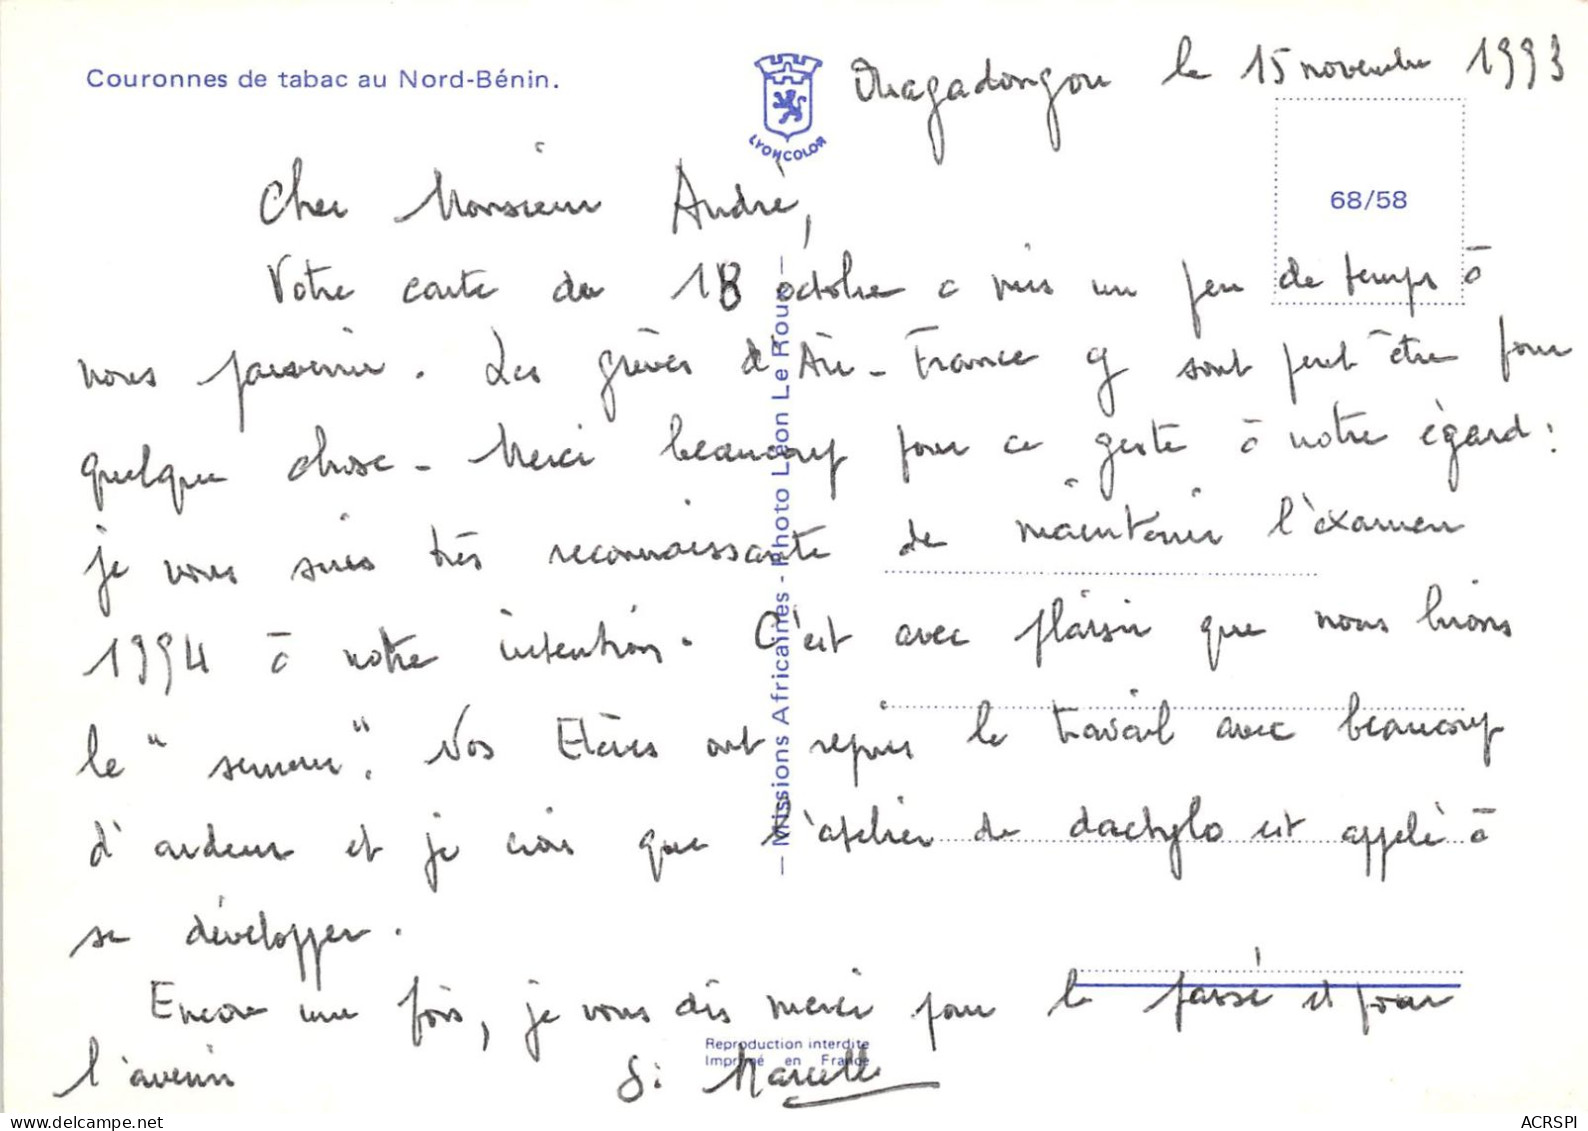 Couronnes de tabac au Nord-Bénin.
LYONCOLOR
68/58
Ouagadougou le 15 novembre 1993
Cher Monsieur André,
Votre carte du 18 octobre a mis un peu de temps à
nous parvenir. Les grèves d'Air-France y sont peut être pour
quelque chose - Merci beaucoup pour ce geste à notre égard :
je vous suis très reconnaissante de maintenir l'examen
1994 à notre intention. C'est avec plaisir que nous lirons
le " ". Nos Elèves ont repris le travail avec beaucoup
d'ardeur et je crois que l'atelier de dactylo est appelé à
se développer.
Encore une fois, je vous dis merci pour le passé et pour
l'avenir
Sr Marcelle
— Missions Africaines - Photo Léon Le Roux —
Reproduction interdite
Imprimé en France
ACRSPI